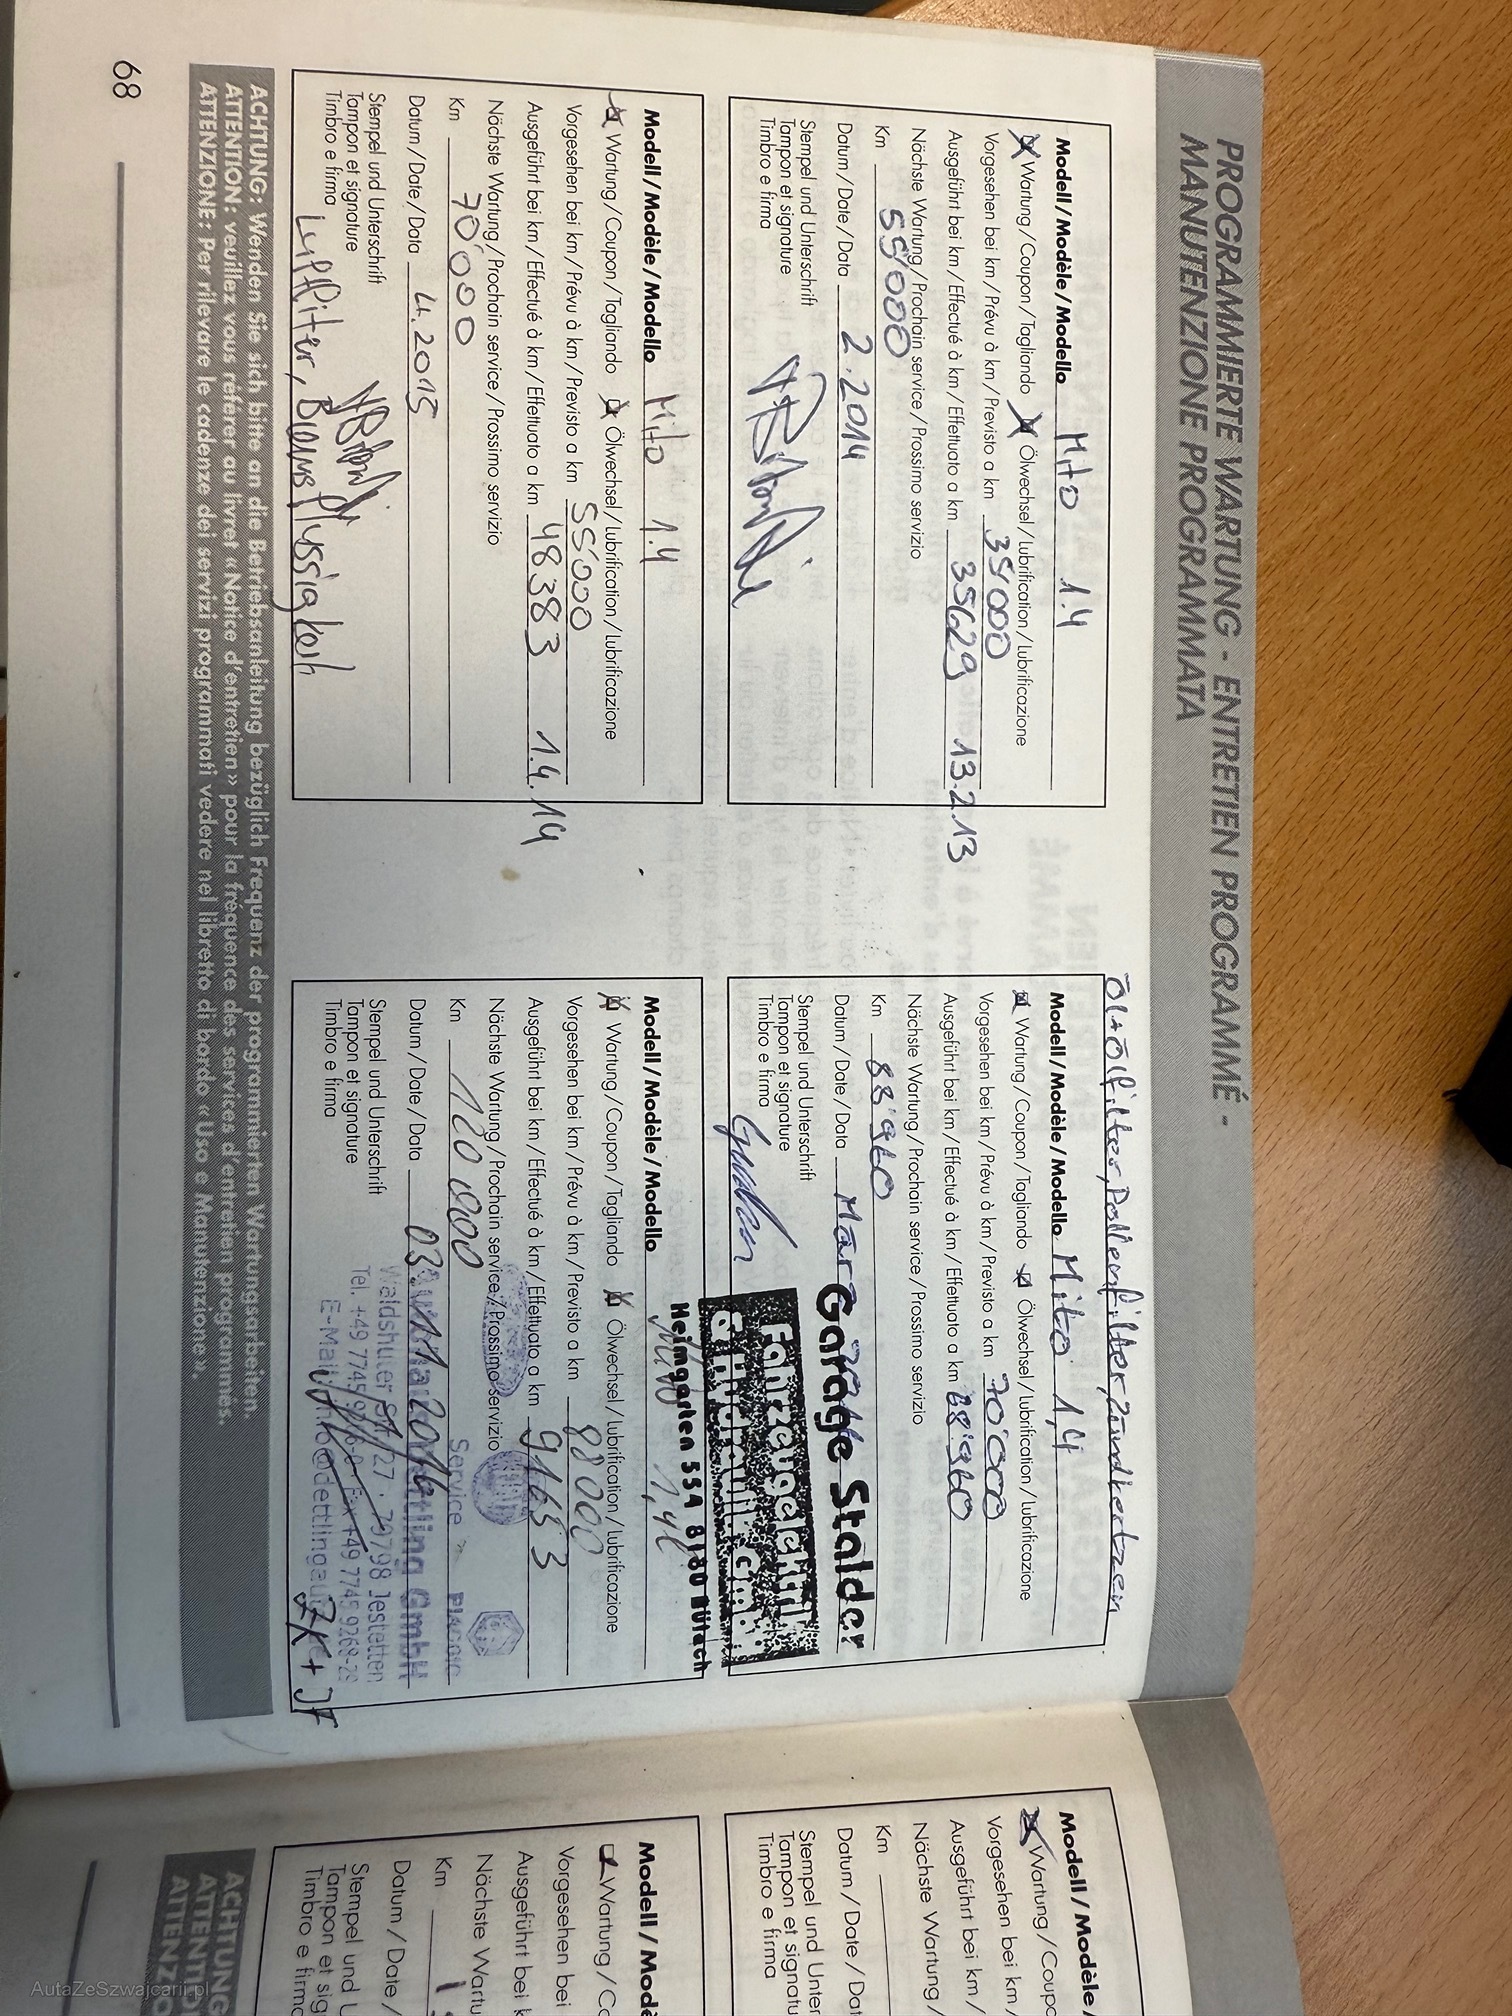 PROGRAMMIERTE WARTUNG - ENTRETIEN PROGRAMMÉ -
MANUTENZIONE PROGRAMMATA
Modell/Modèle/Modello Mito 1.4
Wartung/Coupon/Tagliando Ölwechsel/lubrification/lubrificazione
Vorgesehen bei km/Prévu à km/Previsto a km 35'000
Ausgeführt bei km/Effectué à km/Effettuato a km 35629 13.2.13
Nächste Wartung/Prochain service/Prossimo servizio
Km 55'000
Datum/Date/Data 2.2014
Stempel und Unterschrift
Tampon et signature
Timbro e firma
Modell/Modèle/Modello Mito 1.4
Wartung/Coupon/Tagliando Ölwechsel/lubrification/lubrificazione
Vorgesehen bei km/Prévu à km/Previsto a km 55'000
Ausgeführt bei km/Effectué à km/Effettuato a km 48383 1.4.14
Nächste Wartung/Prochain service/Prossimo servizio
Km 70'000
Datum/Date/Data 4.2015
Stempel und Unterschrift
Tampon et signature
Timbro e firma
Luftfilter, Bremsflüssigkeit
Öl+Ölfilter, Pollenfilter, Zündkertzen
Modell/Modèle/Modello Mito 1,4
Wartung/Coupon/Tagliando Ölwechsel/lubrification/lubrificazione
Vorgesehen bei km/Prévu à km/Previsto a km 70'000
Ausgeführt bei km/Effectué à km/Effettuato a km
Nächste Wartung/Prochain service/Prossimo servizio
Km 88'960
Datum/Date/Data
Stempel und Unterschrift
Tampon et signature
Timbro e firma
Garage Stalder
Fahrzeugtechnik
& Hydraulik GmbH
Heimgarten 554 8180 Bülach
Modell/Modèle/Modello Mito 1,4
Wartung/Coupon/Tagliando Ölwechsel/lubrification/lubrificazione
Vorgesehen bei km/Prévu à km/Previsto a km 88000
Ausgeführt bei km/Effectué à km/Effettuato a km 91653
Nächste Wartung/Prochain service/Prossimo servizio
Km 120 000 Service
Datum/Date/Data 03.
Stempel und Unterschrift
Tampon et signature
Timbro e firma
Dettling GmbH
Waldshuter Str. 27 · 79798 Jestetten
Tel. +49 7745 Fax +49 7745 9268-29
E-Mail
ZK + IF
ACHTUNG: Wenden Sie sich bitte an die Betriebsanleitung bezüglich Frequenz der programmierten Wartungsarbeiten.
ATTENTION: veuillez vous référer au livret «Notice d'entretien» pour la fréquence des services d'entretien programmés.
ATTENZIONE: Per rilevare le cadenze dei servizi programmati vedere nel libretto di bordo «Uso e Manutenzione».
68
Modell/Modèle/
Wartung/Coupo
Vorgesehen bei km/
Ausgeführt bei km/
Nächste Wartung/
Km
Datum/Date/Dat
Stempel und Unter
Tampon et signatu
Timbro e firma
Modell/Modè
Wartung/Co
Vorgesehen bei
Ausgeführt bei k
Nächste Wartu
Km
Datum/Date/
Stempel und U
Tampon et sig
Timbro e firma
ACHTUNG
ATTENTI
ATTENZIO
AutaZeSzwajcarii.pl